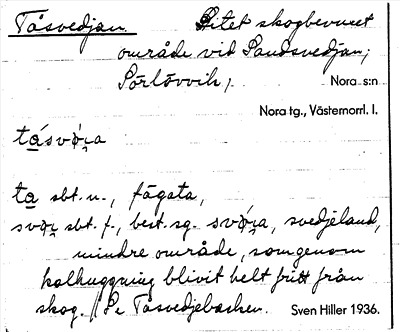 Tåsvedjan. Litet skogbevuxet
område vid Sandsvedjan;
Sörlövvik; Nora s:n
Nora tg., Västernorrl. l.
tá̲svø̜ɩ̯a
ta̲ sbt. n., fägata,
svø̜ɩ̯ sbt. f., best. sg. svǿ̜ɩ̯a, svedjeland,
mindre område, som genom
kalhuggning blivit helt fritt från
skog. / Se Tåsvedjebacken. Sven Hiller 1936.